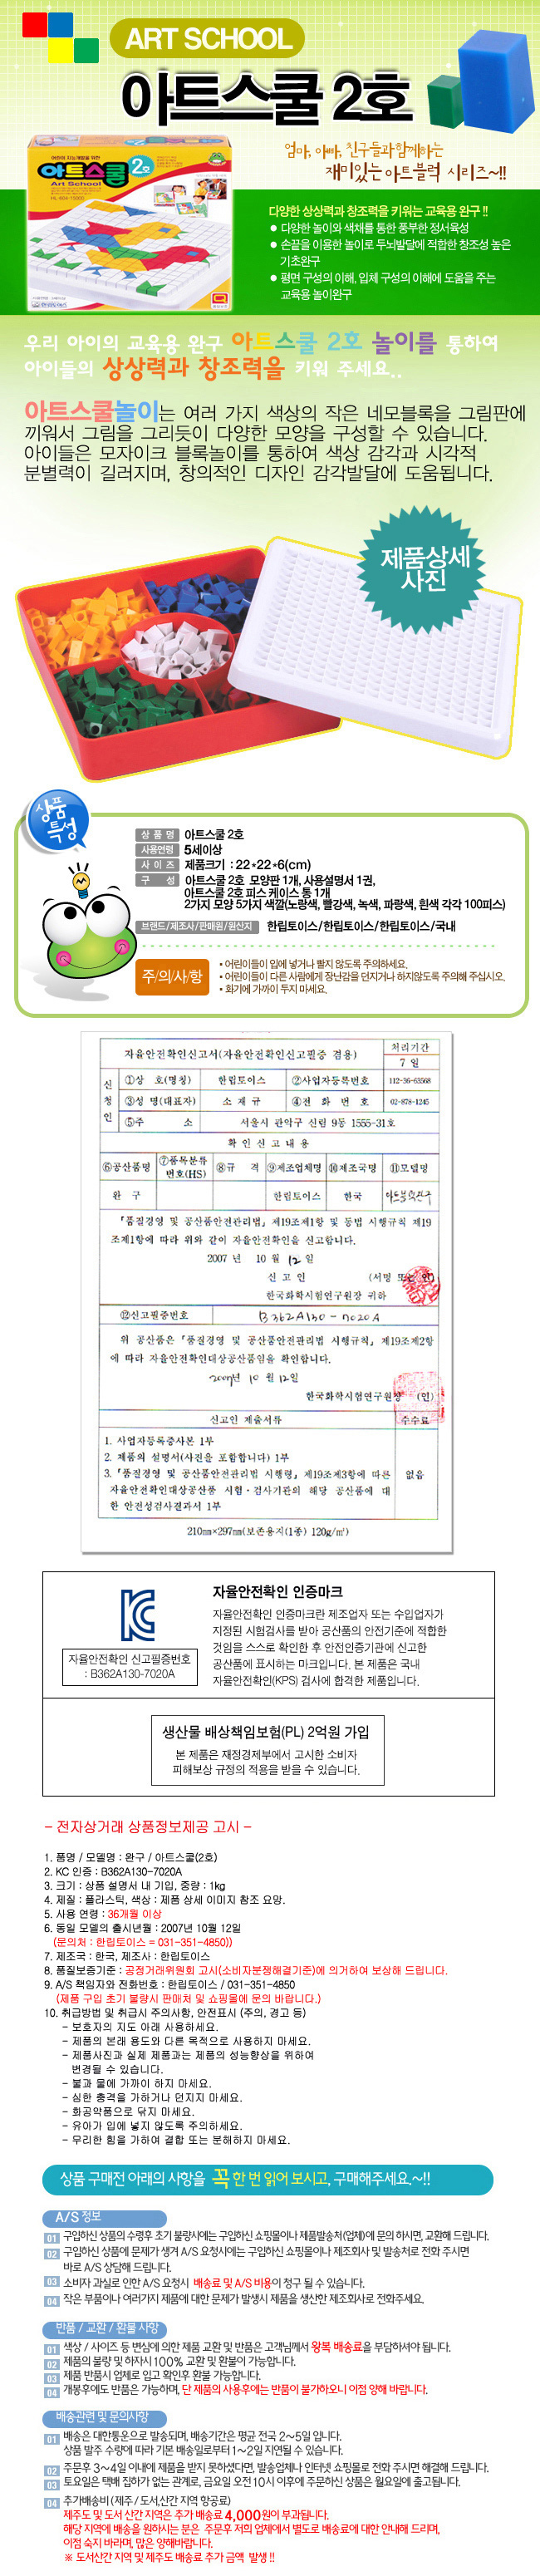 ART SCHOOL
아트스쿨 2호
엄마, 아빠, 친구들과 함께하는
재미있는 아트블럭 시리즈~!!
아트스쿨 2호
Art School
다양한 상상력과 창조력을 키워는 교육용 완구 !!
● 다양한 놀이와 색채를 통한 풍부한 정서육성
● 손끝을 이용한 놀이로 두뇌발달에 적합한 창조성 높은
기초완구
● 평면 구성의 이해, 입체 구성의 이해에 도움을 주는
교육용 놀이완구
우리 아이의 교육용 완구 아트스쿨 2호 놀이를 통하여
아이들의 상상력과 창조력을 키워 주세요..
아트스쿨놀이는 여러 가지 색상의 작은 네모블록을 그림판에
끼워서 그림을 그리듯이 다양한 모양을 구성할 수 있습니다.
아이들은 모자이크 블록놀이를 통하여 색상 감각과 시각적
분별력이 길러지며, 창의적인 디자인 감각발달에 도움됩니다.
제품상세
사진
상품
특성
상 품 명 아트스쿨 2호
사용연령 5세이상
사 이 즈 제품크기 : 22*22*6(cm)
구 성 아트스쿨 2호 모양판 1개, 사용설명서 1권,
아트스쿨 2호 피스 케이스 통 1개
2가지 모양 5가지 색깔(노랑색, 빨강색, 녹색, 파랑색, 흰색 각각 100피스)
브랜드/제조사/판매원/원산지 한립토이스/한립토이스/한립토이스/국내
주/의/사/항
• 어린이들이 입에 넣거나 빨지 않도록 주의하세요.
• 어린이들이 다른 사람에게 장난감을 던지거나 하지않도록 주의해 주십시오.
• 화기에 가까이 두지 마세요.
자율안전확인신고서(자율안전확인신고필증 겸용)
처리기간
7 일
신청인
①상 호(명칭) 한립토이스 ②사업자등록번호 112-36-63568
③성 명(대표자) 소 재 규 ④전 화 번 호 02-878-1245
⑤주 소 서울시 관악구 신림 9동 1555-31호
확 인 신 고 내 용
⑥공산품명 ⑦품목분류번호(HS) ⑧규 격 ⑨제조업체명 ⑩제조국명 ⑪모델명
완 구 한립토이스 한국 아트블럭완구
「품질경영 및 공산품안전관리법」제19조제1항 및 동법 시행규칙 제19
조제1항에 따라 위와 같이 자율안전확인을 신고합니다.
2007 년 10 월 12 일
신 고 인 (서명 또는 인)
한국화학시험연구원장 귀하
⑫신고필증번호 B362A130-7020A
위 공산품은「품질경영 및 공산품안전관리법 시행규칙」제19조제2항
에 따라 자율안전확인대상공산품임을 확인합니다.
2007년 10 월 12 일
한국화학시험연구원장 (인)
신고인 제출서류 수수료
1. 사업자등록증사본 1부
2. 제품의 설명서(사진을 포함합니다) 1부
3.「품질경영 및 공산품안전관리법 시행령」제19조제3항에 따른 없음
자율안전확인대상공산품 시험·검사기관의 해당 공산품에 대
한 안전성검사결과서 1부
210mm×297mm(보존용지(1종) 120g/㎡)
자율안전확인 인증마크
자율안전확인 인증마크란 제조업자 또는 수입업자가
지정된 시험검사를 받아 공산품의 안전기준에 적합한
것임을 스스로 확인한 후 안전인증기관에 신고한
공산품에 표시하는 마크입니다. 본 제품은 국내
자율안전확인(KPS) 검사에 합격한 제품입니다.
자율안전확인 신고필증번호
: B362A130-7020A
생산물 배상책임보험(PL) 2억원 가입
본 제품은 재정경제부에서 고시한 소비자
피해보상 규정의 적용을 받을 수 있습니다.
- 전자상거래 상품정보제공 고시 -
1. 품명 / 모델명 : 완구 / 아트스쿨(2호)
2. KC 인증 : B362A130-7020A
3. 크기 : 상품 설명서 내 기입, 중량 : 1kg
4. 제질 : 플라스틱, 색상 : 제품 상세 이미지 참조 요망.
5. 사용 연령 : 36개월 이상
6. 동일 모델의 출시년월 : 2007년 10월 12일
(문의처 : 한립토이스 = 031-351-4850))
7. 제조국 : 한국, 제조사 : 한립토이스
8. 품질보증기준 : 공정거래위원회 고시(소비자분쟁해결기준)에 의거하여 보상해 드립니다.
9. A/S 책임자와 전화번호 : 한립토이스 / 031-351-4850
(제품 구입 초기 불량시 판매처 및 쇼핑몰에 문의 바랍니다.)
10. 취급방법 및 취급시 주의사항, 안전표시 (주의, 경고 등)
- 보호자의 지도 아래 사용하세요.
- 제품의 본래 용도와 다른 목적으로 사용하지 마세요.
- 제품사진과 실제 제품과는 제품의 성능향상을 위하여
변경될 수 있습니다.
- 불과 물에 가까이 하지 마세요.
- 심한 충격을 가하거나 던지지 마세요.
- 화공약품으로 닦지 마세요.
- 유아가 입에 넣지 않도록 주의하세요.
- 무리한 힘을 가하여 결합 또는 분해하지 마세요.
상품 구매전 아래의 사항을 꼭 한 번 읽어 보시고, 구매해주세요.~!!
A/S 정보
01 구입하신 상품의 수령후 초기 불량시에는 구입하신 쇼핑몰이나 제품발송처(업체)에 문의 하시면, 교환해 드립니다.
02 구입하신 상품에 문제가 생겨 A/S 요청시에는 구입하신 쇼핑몰이나 제조회사 및 발송처로 전화 주시면
바로 A/S 상담해 드립니다.
03 소비자 과실로 인한 A/S 요청시 배송료 및 A/S 비용이 청구 될 수 있습니다.
04 작은 부품이나 여러가지 제품에 대한 문제가 발생시 제품을 생산한 제조회사로 전화주세요.
반품 / 교환 / 환불 사항
01 색상 / 사이즈 등 변심에 의한 제품 교환 및 반품은 고객님께서 왕복 배송료을 부담하셔야 됩니다.
02 제품의 불량 및 하자시 100% 교환 및 환불이 가능합니다.
03 제품 반품시 업체로 입고 확인후 환불 가능합니다.
04 개봉후에도 반품은 가능하며, 단 제품의 사용후에는 반품이 불가하오니 이점 양해 바랍니다.
배송관련 및 문의사항
01 배송은 대한통운으로 발송되며, 배송기간은 평균 전국 2~5일 입니다.
상품 발주 수량에 따라 기본 배송일로부터 1~2일 지연될 수 있습니다.
02 주문후 3~4일 이내에 제품을 받지 못하였다면, 발송업체나 인터넷 쇼핑몰로 전화 주시면 해결해 드립니다.
03 토요일은 택배 집하가 없는 관계로, 금요일 오전10시 이후에 주문하신 상품은 월요일에 출고됩니다.
04 추가배송비 (제주 / 도서,산간 지역 항공료)
제주도 및 도서 산간 지역은 추가 배송료 4,000원이 부과됩니다.
해당 지역에 배송을 원하시는 분은 주문후 저희 업체에서 별도로 배송료에 대한 안내해 드리며,
이점 숙지 바라며, 많은 양해바랍니다.
※ 도서산간 지역 및 제주도 배송료 추가 금액 발생 !!